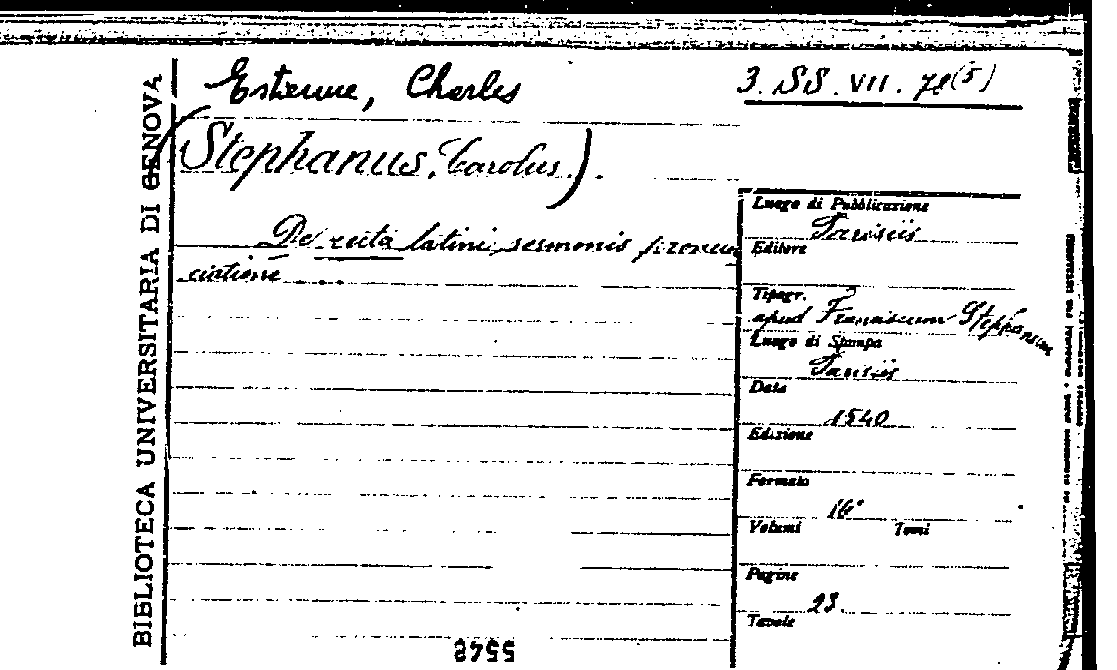 BIBLIOTECA UNIVERSITARIA DI GENOVA
Estienne, Charles
3. SS. VII. 78(5)
(Stephanus, Carolus).
De recta latini sermonis pronun
ciatione ....
Luogo di Pubblicazione
Parisiis
Editore
Tipogr.
apud Franciscum Stephanum
Luogo di Stampa
Parisiis
Data
1540
Edizione
Formato
16°
Volumi Tomi
Pagine
23.
Tavole
5548